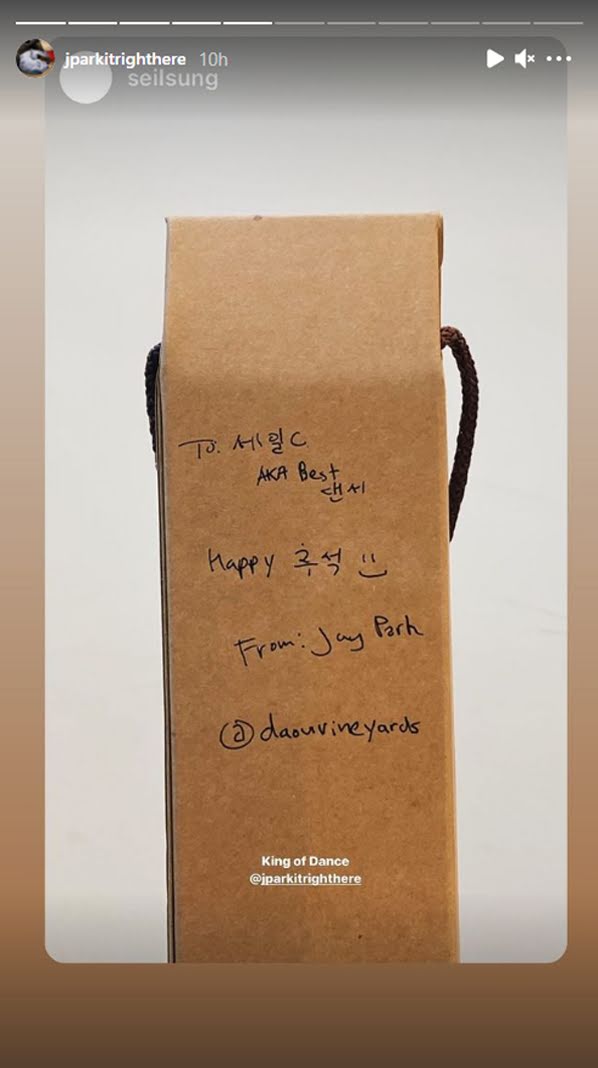 jparkitrighthere 10h
seilsung
To. 세일C
AKA Best
댄서
Happy 추석
From: Jay Park
@daouvineyards
King of Dance
@jparkitrighthere